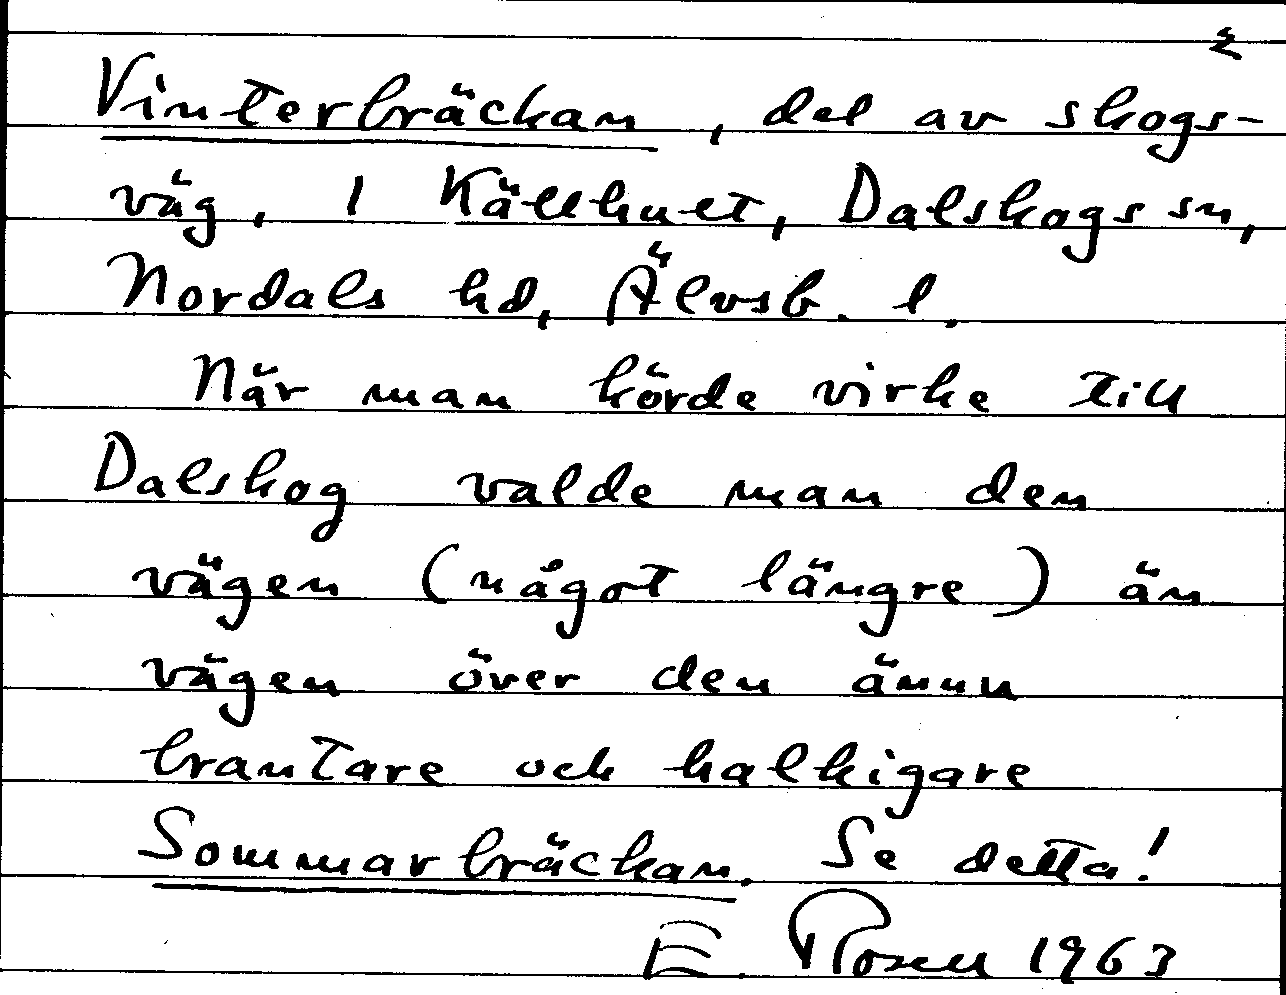 Vinterbräckan, del av skogs-
väg, i Källhult, Dalskogs sn,
Nordals hd, Älvsb. l.
När man körde virke till
Dalskog valde man den
vägen (något längre) än
vägen över den ännu
brantare och halkigare
Sommarbräckan. Se detta!
E. Rosell 1963